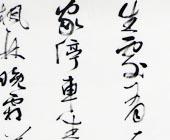 生處有
家停車坐
楓林晚霜